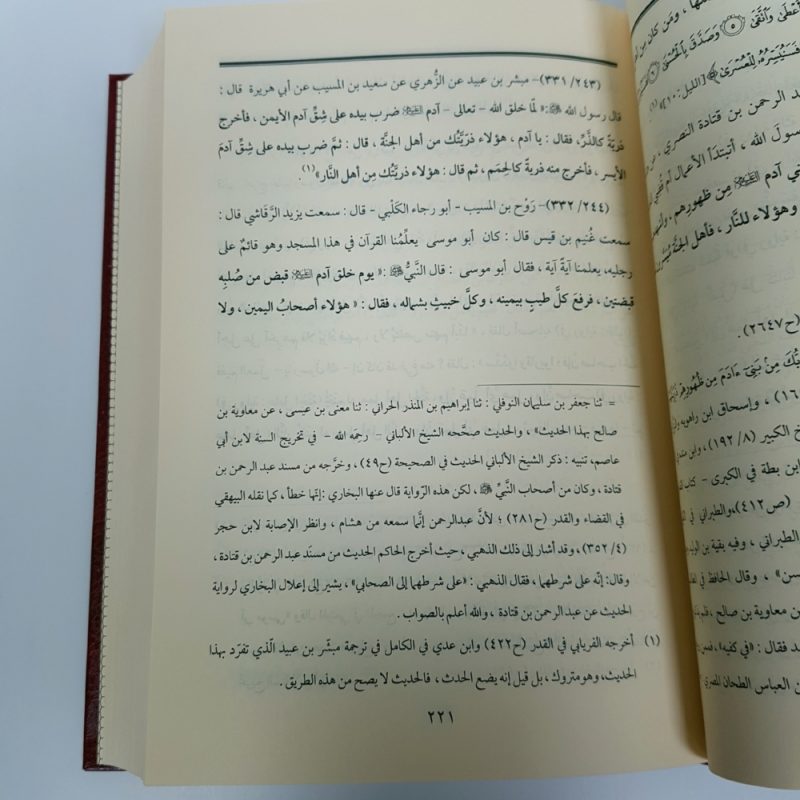 (٣٣١/٢٤٣)- مبشر بن عبيد عن الزُّهري عن سعيد بن المسيب عن أبي هريرة قال :
قال رسول الله ﷺ : « لمّا خلق الله - تعالى - آدم ضرب بيده على شِقِّ آدم الأيمن ، فأخرج
ذريَّةً كالذَّرِّ، فقال : يا آدم ، هؤلاء ذريَّتُك من أهل الجنَّة ، قال : ثمَّ ضرب بيده على شِقِّ آدمَ
الأيسر ، فأخرج منه ذريةً كالحِمَم ، ثم قال : هؤلاء ذريَّتُك مِن أهل النَّار» (١).
(٣٣٢/٢٤٤)- رَوْح بن المسيب - أبو رجاء الكَلْبي - قال : سمعت يزيد الرَّقاشي قال :
سمعت غُنيم بن قيس قال : كان أبو موسى يعلِّمُنا القرآن في هذا المسجد وهو قائمٌ على
رجليه، يعلمنا آيةً آية ، فقال أبو موسى : قال النَّبيُّ ﷺ : « يوم خلق آدم قبض من صُلبِه
قبضتين ، فرفعَ كلَّ طيبٍ بيمينه ، وكلَّ خبيثٍ بشماله ، فقال : « هؤلاء أصحابُ اليمين ، ولا
= ثنا جعفر بن سليمان النوفلي : ثنا إبراهيم بن المنذر الحراني : ثنا معنى بن عيسى ، عن معاوية بن
صالح بهذا الحديث» ، والحديث صحَّحه الشيخ الألباني - رحمَه الله - في تخريج السنة لابن أبي
عاصم، تنبيه : ذكر الشيخ الألباني الحديث في الصحيحة (ح٤٩) ، وخرَّجه من مسند عبد الرحمن بن
قتادة ، وكان من أصحاب النَّبيِّ ﷺ ، لكن هذه الرِّواية قال عنها البخاري :إنَّها خطأ ، كما نقله البيهقي
في القضاء والقدر (ح٢٨١) ؛ لأنَّ عبدالرحمن إنَّما سمعه من هشام ، وانظر الإصابة لابن حجر
(٣٥٢/٤) ، وقد أشار إلى ذلك الذهبي ، حيث أخرج الحاكم الحديث من مسنَد عبد الرحمن بن قتادة ،
وقال: إنَّه على شرطهما، فقال الذهبي : «على شرطهما إلى الصحابي» ، يشير إلى إعلال البخاري لرواية
الحديث عن عبد الرحمن بن قتادة ، والله أعلم بالصواب .
(١) أخرجه الفريابي في القدر (ح٤٢٢) وابن عدي في الكامل في ترجمة مبشّر بن عبيد الّذي تفرّد بهذا
الحديث، وهو متروك ، بل قيل إنه يضع الحدث ، فالحديث لا يصح من هذه الطريق .
٢٢١
[الليل:
عبد الرحمن بن قتادة النصري
رسولَ الله ، أتبتدَأ الأعمال أم
بني آدم مِن ظهورِهم
وهؤلاء للنَّار ، فأهل الجنَّة
(ح٢٦٤٧).
مِنْ بَنِىٓ ءَادَمَ مِن ظُهُورِهِمْ
، وإسحاق ابن راهويه
الكبير (١٩٢/٨)
ابن بطة في الكبرى - كتاب
(ص٤١٢)، والطبراني في
الطبراني ، وفيه بقية بن الوليد
، وقال الحافظ في
بن معاوية بن صالح
فقال : «في كفيه»
ن العباس الطحان المصري